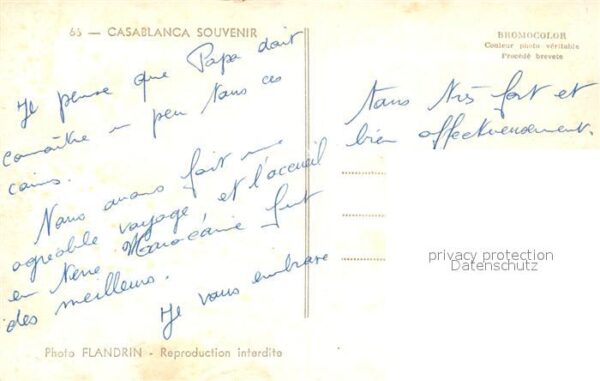 65 — CASABLANCA SOUVENIR
BROMOCOLOR
Couleur photo véritable
Procédé breveté
Je pense que Papa doit
connaître un peu tous ces
coins.
Nous avons fait un
agréable voyage et l'accueil
en Terre Marocaine fut
des meilleurs.
Je vous embrasse
tous très fort et
bien affectueusement.
privacy protection
Datenschutz
Photo FLANDRIN - Reproduction interdite